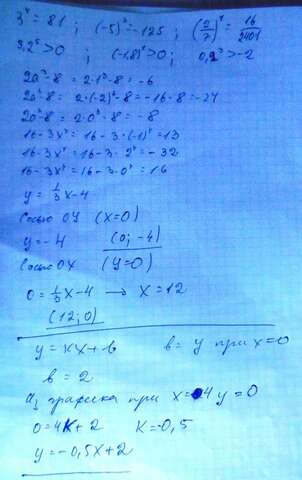 3⁴ = 81 ; (-5)³ = -125 ; (2/7)⁴ = 16/2401
3,2⁵ > 0 ; (-1,8)⁶ > 0 ; 0,2³ > -2
2a³-8 = 2·1³-8 = -6
2a³-8 = 2·(-2)³-8 = -16-8 = -24
2a³-8 = 2·0³-8 = -8
16-3x⁴ = 16-3·(-1)⁴ = 13
16-3x⁴ = 16-3·2⁴ = -32
16-3x⁴ = 16-3·0⁴ = 16
y = 1/3x-4
с осью OY (x=0)
y = -4 (0; -4)
с осью OX (y=0)
0 = 1/3x-4 → x = 12
(12; 0)
y = kx+b b = y при x=0
b = 2
Из графика при x=4 y=0
0 = 4k+2 k = -0,5
y = -0,5x+2